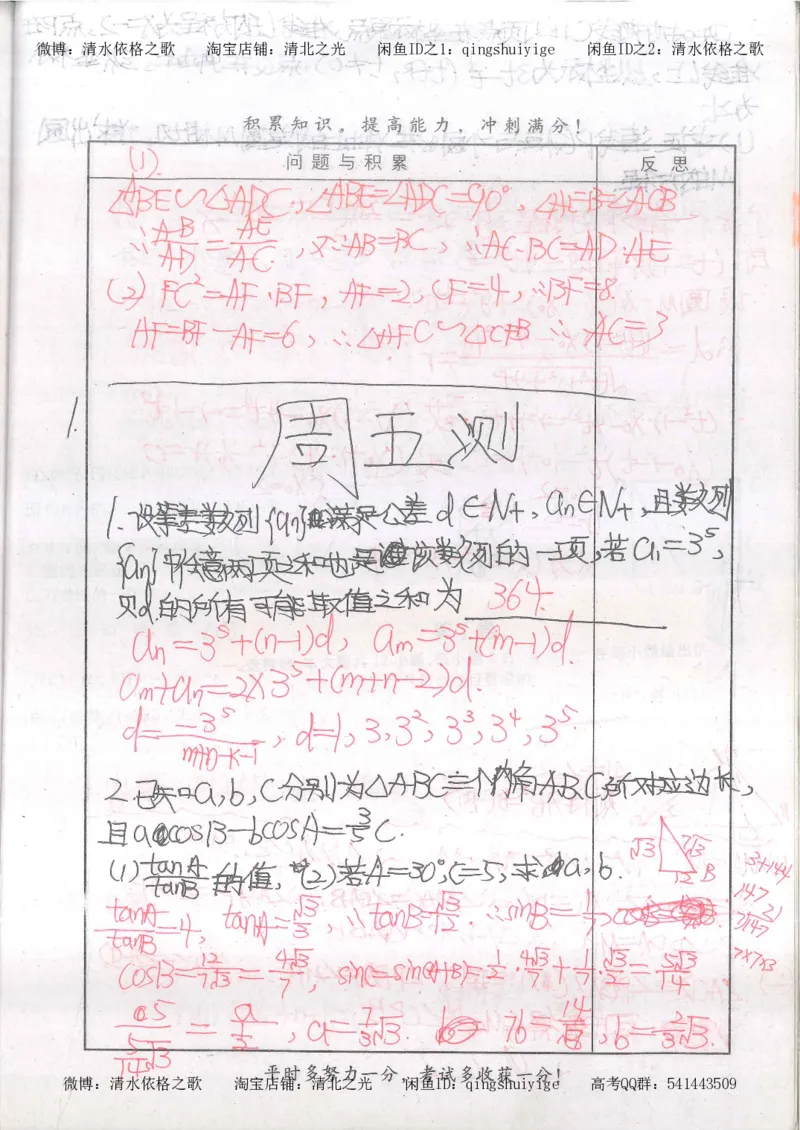 微博：清水依格之歌 淘宝店铺：清北之光 闲鱼ID之1：qingshuiyige 闲鱼ID之2：清水依格之歌
积累知识。提高能力，冲刺满分！
问题与积累 反思
(1).
△ABE∽△ADC,∠ABE=∠ADC=90°,∠AEB=∠ACB
∴AB/AD=AE/AC,又∵AB=BC,∴AC·BC=AD·AE
(2) FC²=AF·BF, AF=2, CF=4, ∴BF=8.
AF=BF-AF=6, ∴△AFC∽△CFB ∴AC=3
1.
周五测
1.设等差数列{an}满足公差d∈N+, an∈N+,且数列
{an}中任意两项之和也是该数列的一项,若a1=3⁵,
则d的所有可能取值之和为 364.
an=3⁵+(n-1)d, am=3⁵+(m-1)d.
am+an=2×3⁵+(m+n-2)d.
d=-3⁵/(m+n-k-1), d=1,3,3²,3³,3⁴,3⁵
2.已知a,b,c分别为△ABC三个内角A,B,C的对应边长,
且acosB-bcosA=3/5 c.
(1)tanA/tanB的值,(2)若A=30°,c=5,求a,b.
√3 7√3 12 B
3+144
147
21
7√147
7×7×3
tanA/tanB=4, tanA=√3/3, ∴tanB=√3/12. ∴sinB=1/7
cosB=12/7√3=4√3/7, sinC=sin(A+B)=1/2·4√3/7+1/7·√3/2=5√3/14
5/(5√3/14)=a/(1/2), a=7/3√3. 7b=14/√3, b=2/3√3.
平时多努力一分，考试多收获一分！
微博：清水依格之歌 淘宝店铺：清北之光 闲鱼ID：qingshuiyige 高考QQ群：541443509